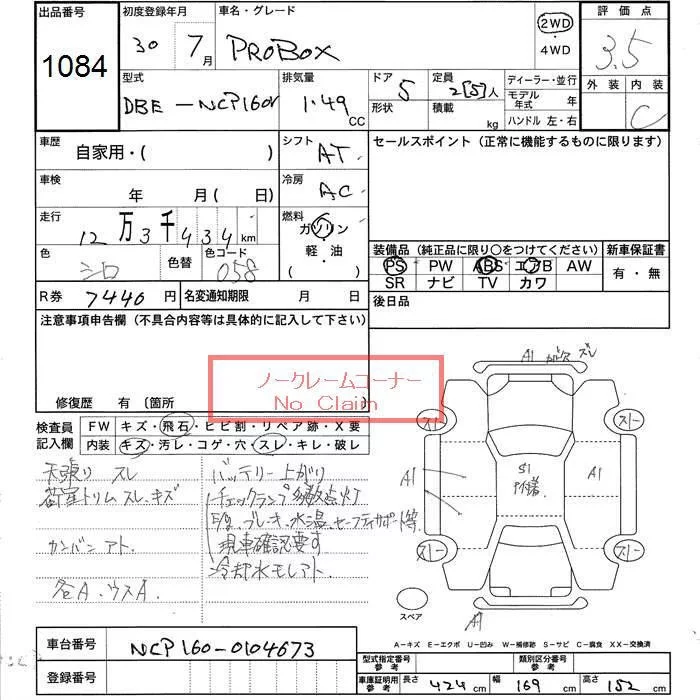 出品番号 初度登録年月 車名・グレード 評価点
1084 30 7月 PROBOX 2WD ・ 4WD 3.5
外装 内装
C
型式 排気量 ドア 定員 ディーラー・並行
DBE-NCP160V 1.49 CC 5 2[5]人 モデル年式 年
形状 積載 kg ハンドル 左・右
車歴 自家用・( ) シフト AT セールスポイント(正常に機能するものに限ります)
車検 年 月( 日) 冷房 AC
走行 12万3千434km 燃料 ガソリン
軽・油
( )
色 シロ 色替 色コード 058
装備品(純正品に限り○をつけてください) 新車保証書
PS PW ABS エアB AW 有・無
SR ナビ TV カワ
R券 7440円 名変通知期限 月 日 後日品
注意事項申告欄(不具合内容等は具体的に記入して下さい)
ノークレームコーナー
No Claim
修復歴 有 〔箇所 〕
検査員記入欄 FW キズ・飛石・ヒビ割・リペア跡・X要
内装 キズ・汚レ・コゲ・穴・スレ・キレ・破レ
天張り スレ
荷室トリム スレ、キズ
カンバン アト、
各A、ウスA、
バッテリー上がり
チェックランプ多数点灯
ブレーキ、水温、セーフティサポート等、
現車確認要す
冷却水モレアト、
A1 ガリ欠 スレ
スレー スレー
A1 S1 A1
スレー スレー
スペア A1
A-キズ E-エクボ U-凹み W-補修跡 S-サビ C-腐食 XX-交換済
車台番号 NCP160-0104673
登録番号
型式指定番号参考 類別区分番号参考
車庫証明用参考 長さ 424 cm 幅 169 cm 高さ 152 cm